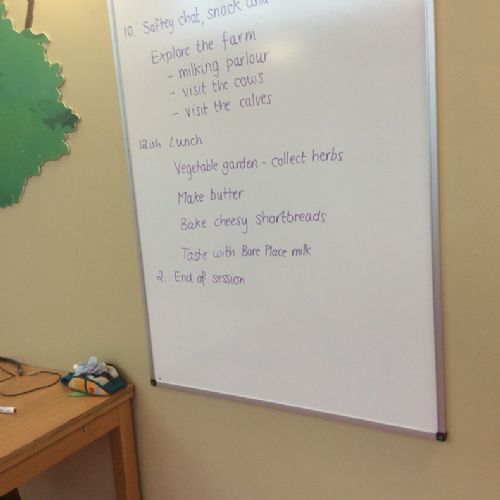 10. Saftey chat, snack and
Explore the farm
- milking parlour
- visit the cows
- visit the calves
12ish Lunch
Vegetable garden - collect herbs
Make butter
Bake cheesy shortbreads
Taste with Bore Place milk
2. End of session